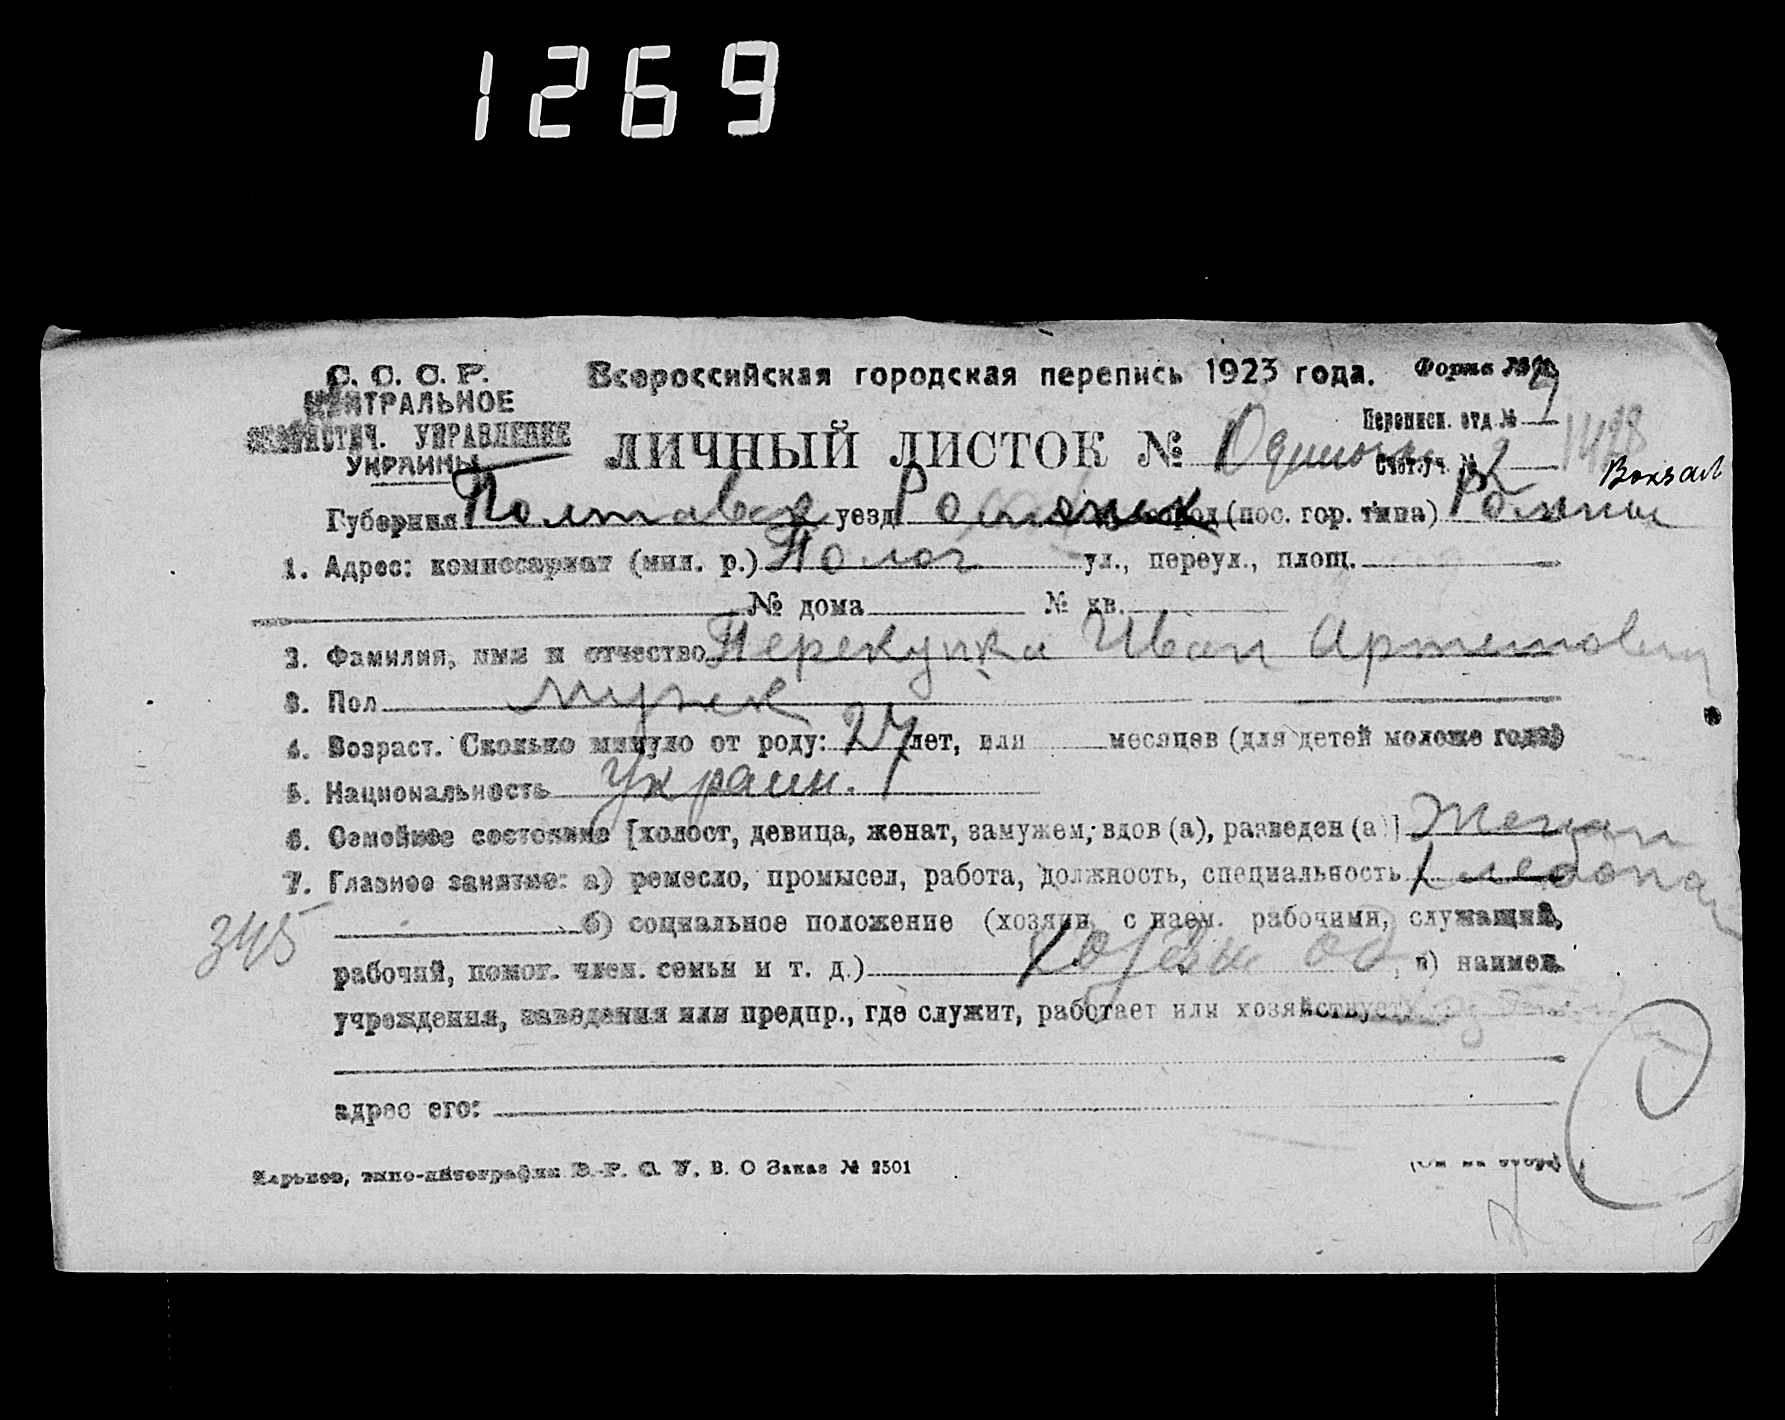 1269
С. С. С. Р.
ЦЕНТРАЛЬНОЕ
СТАТИСТИЧ. УПРАВЛЕНИЕ
УКРАИНЫ
Всероссийская городская перепись 1923 года. Форма №
Переписн. отд. №
ЛИЧНЫЙ ЛИСТОК №
Счет. уч. № 2
Вокзал
Губерния Полтавск уезд город (пос. гор. типа) Ромны
1. Адрес: комиссариат (мил. р.) ул., переул., площ.
№ дома № кв.
2. Фамилия, имя и отчество Перекупка Иван Артемович
3. Пол мужск
4. Возраст. Сколько минуло от роду: 27 лет, или месяцев (для детей моложе года)
5. Национальность украин.
6. Семейное состояние [холост, девица, женат, замужем, вдов (а), разведен (а)] Женат
7. Главное занятие: а) ремесло, промысел, работа, должность, специальность хлебопаш
345
б) социальное положение (хозяин с наем. рабочими, служащий,
рабочий, помог. член. семьи и т. д.) хозяин од, в) наимен.
учреждения, заведения или предпр., где служит, работает или хозяйствует
адрес его:
Харьков, типо-литография В. О Заказ № 2501